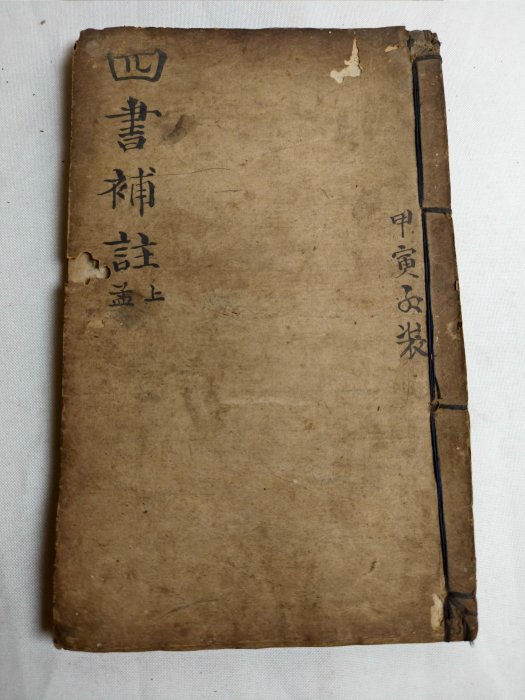 甲寅装
四書補註
上
孟